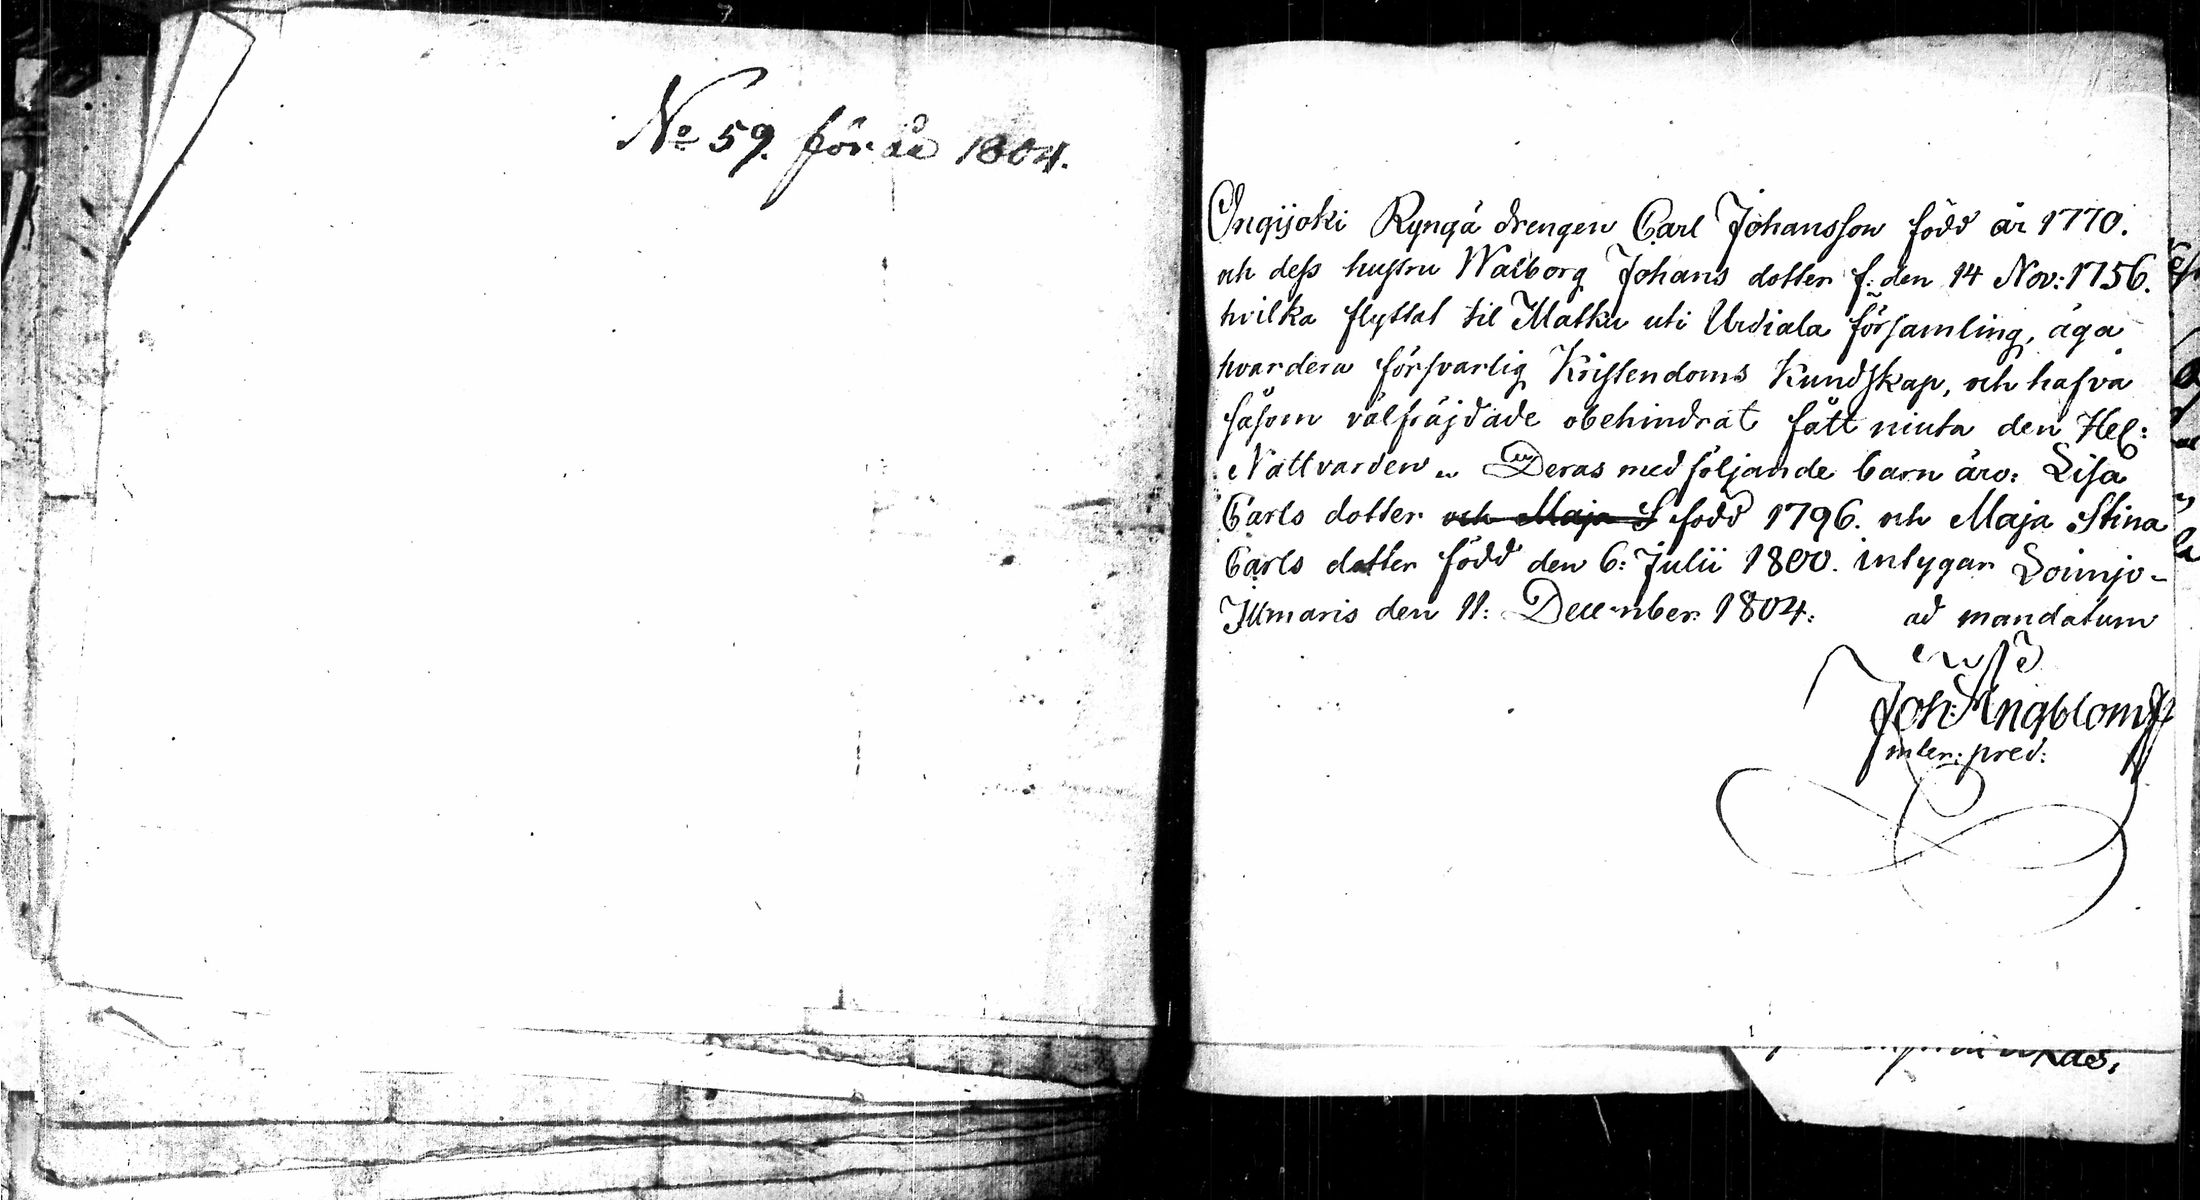 No 59. för år 1804.
Ingijoki Ryngä drengen Carl Johansson född år 1770.
och dess hustru Walborg Johans dotter f: den 14 Nov: 1756.
hvilka flyttat til Matku uti Urdiala församling, äga
hvardera försvarlig Kristendoms Kundskap, och hafva
såsom välfräjdade obehindrat fått niuta den Hel:
Nattvarden. Deras medföljande barn äro: Lisa
Carls dotter och Maja S född 1796. och Maja Stina
Carls dotter född den 6: Julii 1800. intygar Loimjo-
Ilmaris den 11: December 1804. ad mandatum
Joh: Ängblom
inter: pred: